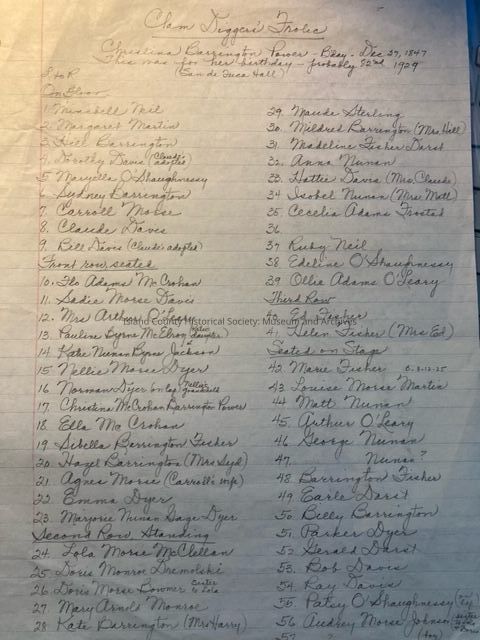 Clam Diggers' Frolic
Christina Barrington Power - B'day - Dec 27, 1847
This was for her birthday - probably 82nd 1929
(San de Fuca Hall)
L to R
On Floor
1. Minabell Neil
2. Margaret Martin
3. Hill Barrington
4. Dorothy Davis (Claude's adopted)
5. Maryellen O'Shaughnessy
6. Sydney Barrington
7. Carroll Morse
8. Claude Davis
9. Bill Davis (Claude, adopted)
Front row, seated
10. Flo Adams McCrohan
11. Sadie Morse Davis
12. Mrs Arthur O'Leary
13. Pauline Byrne McElroy
14. Katie Nunan Byrne Jackson
15. Nellie Morse Dyer
16. Norman Dyer on lap Nellie's grandchild
17. Christina McCrohan Barrington Power
18. Ella McCrohan
19. Sibella Barrington Fisher
20. Hazel Barrington (Mrs Syd)
21. Agnes Morse (Carroll's wife)
22. Emma Dyer
23. Marjorie Nunan Gage Dyer
Second Row, Standing
24. Lola Morse McClellan
25. Doris Monroe Dremolski
26. Doris Morse Bowner Sister to Lola
27. Mary Arnold Monroe
28. Kate Barrington (Mrs Harry)
29. Maude Sterling
30. Mildred Barrington (Mrs. Hill)
31. Madeline Fisher Darst
32. Anna Nunan
33. Hattie Davis (Mrs. Claude)
34. Isobel Nunan (Mrs. Matt)
35. Cecelia Adams Frostad
36.
37. Ruby Neil
38. Edeline O'Shaughnessy
39. Ollie Adams O'Leary
Third Row
40. Ed Fisher
41. Helen Fisher (Mrs Ed)
Seated on Stage
42. Marie Fisher
43. Louise Morse Martin
44. Matt Nunan
45. Arthur O'Leary
46. George Nunan
47. Nunan?
48. Barrington Fisher
49. Earle Darst
50. Billy Barrington
51. Parker Dyer
52. Gerald Darst
53. Bob Davis
54. Ray Davis
55. Patsy O'Shaughnessy
56. Audrey Morse Johnson
57. ?
Island County Historical Society: Museum and Archives